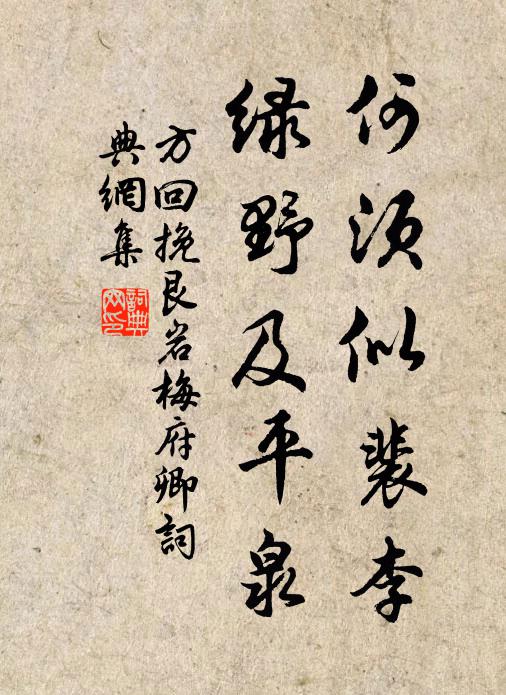 何須似裴李
綠野及平泉
方回挽艮岩梅府卿詞
典網集
詞典網印